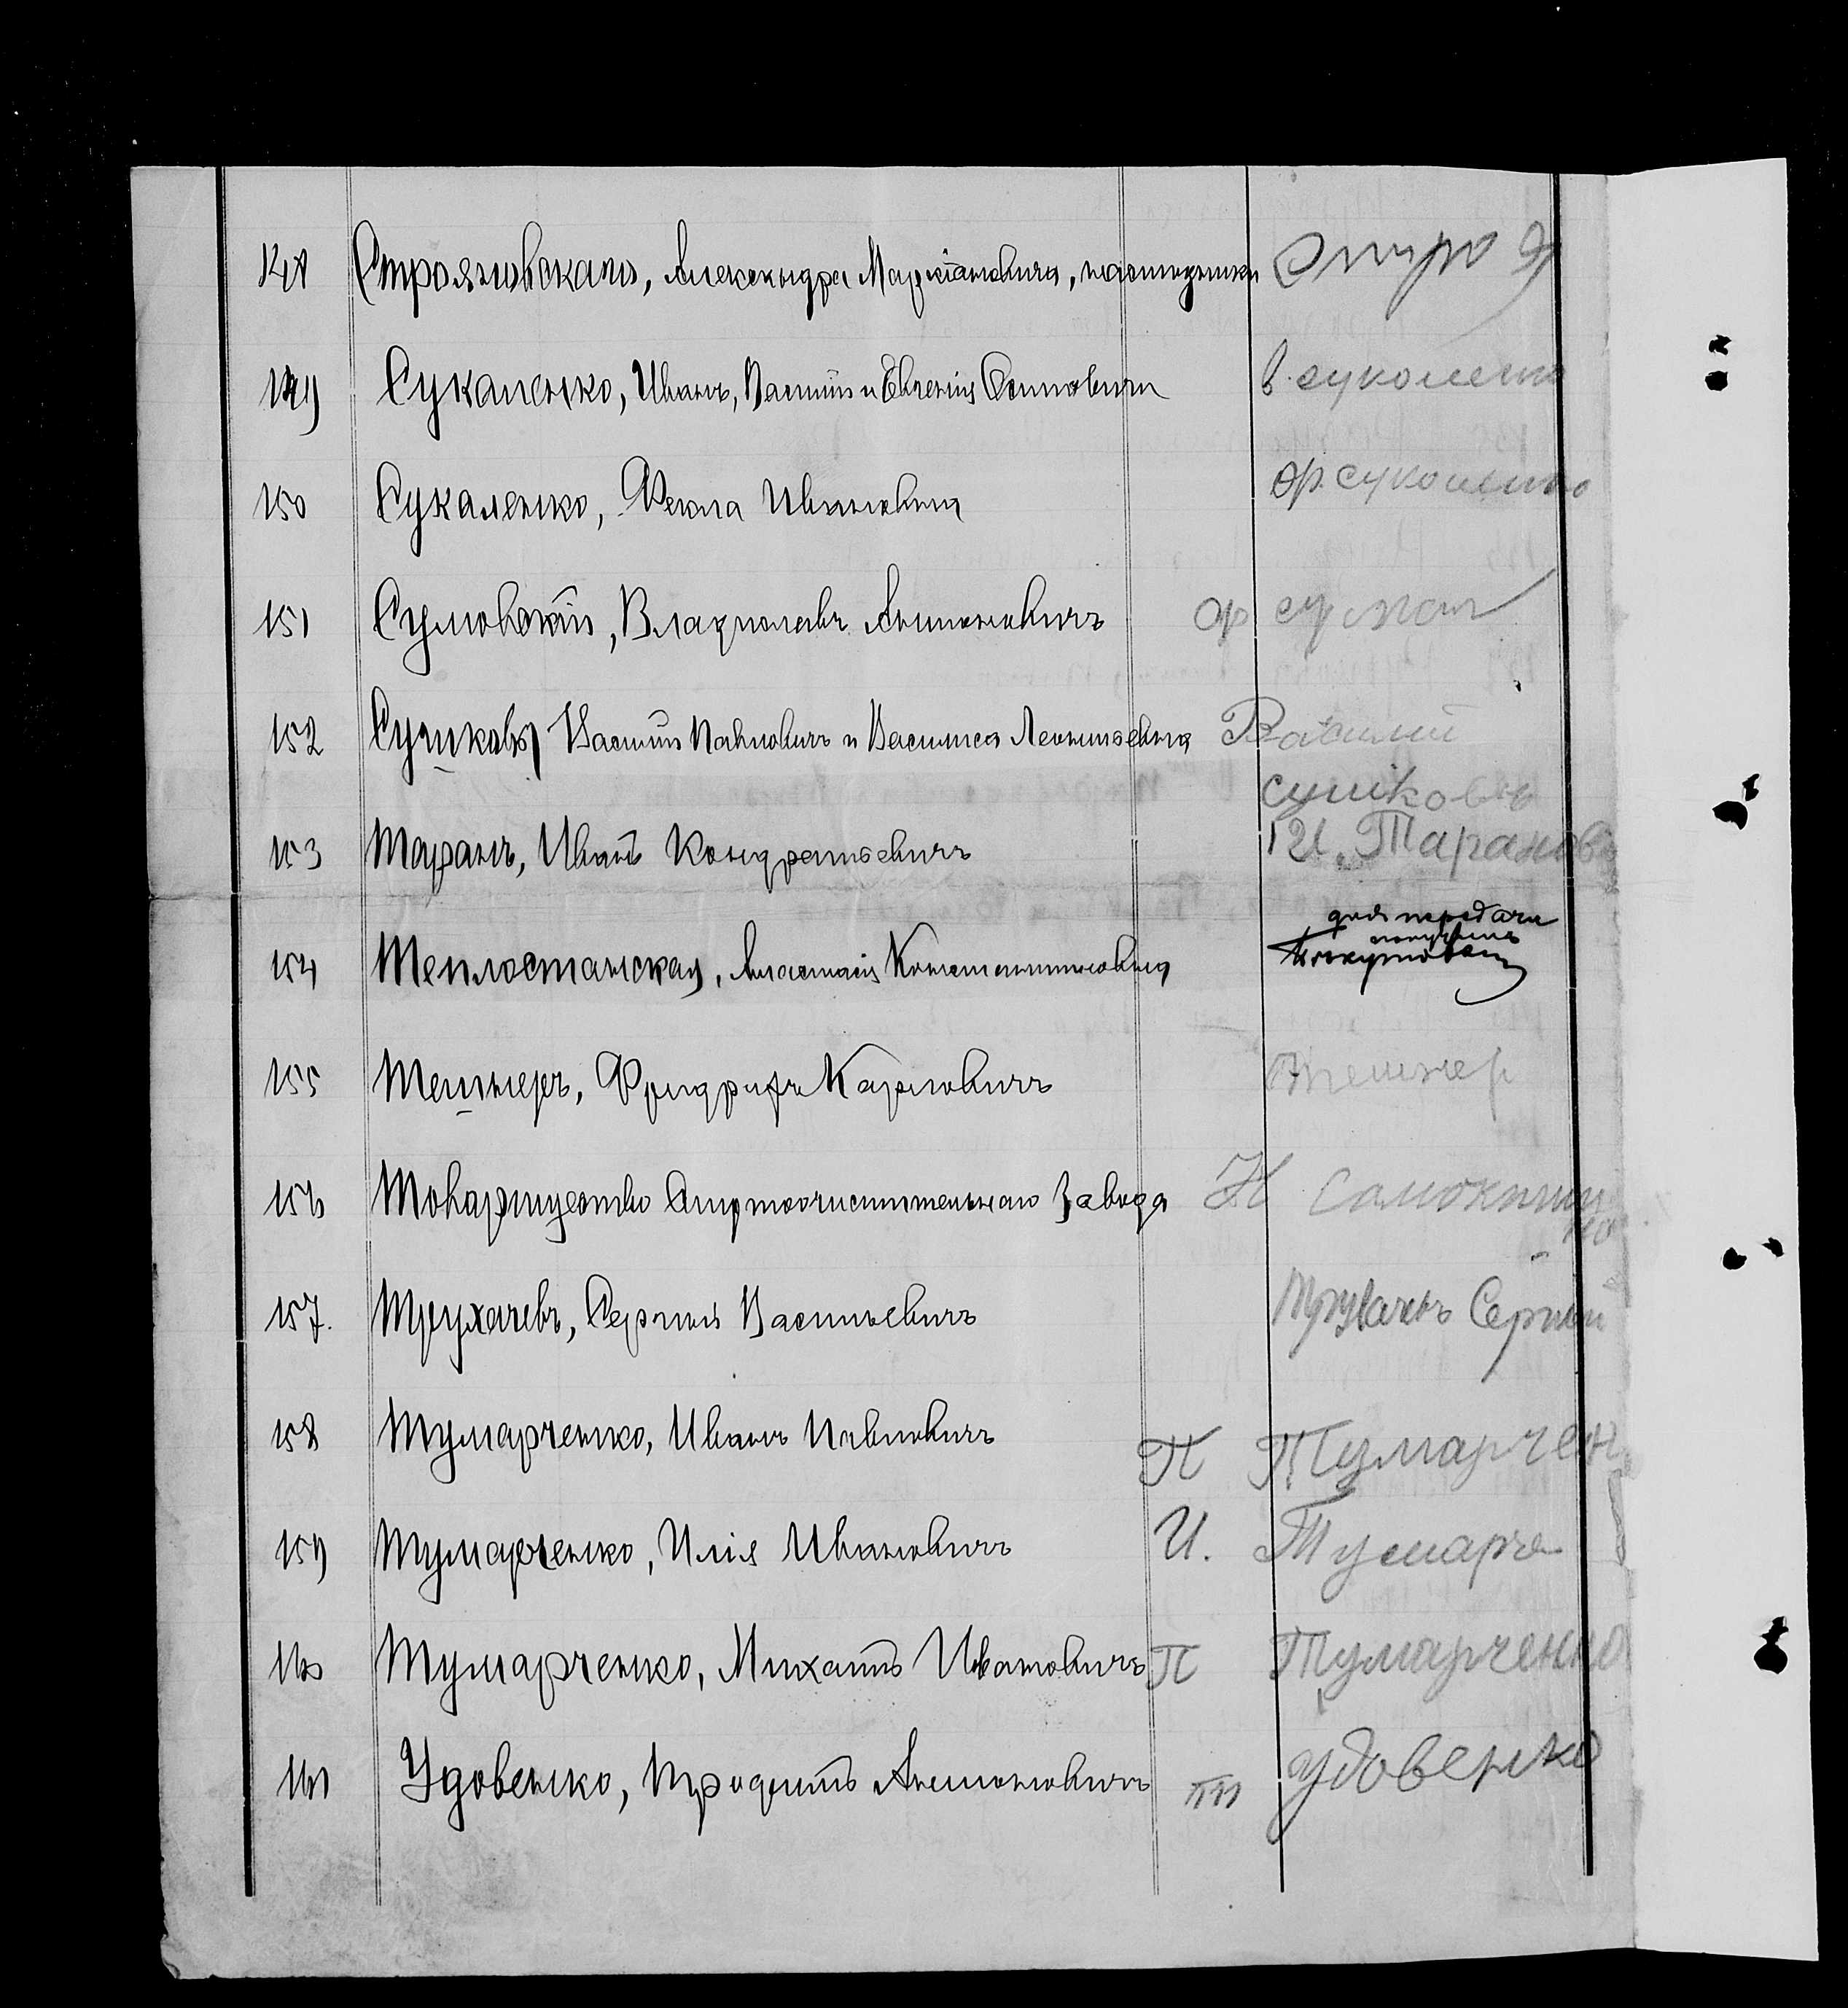 148 Строяновскаго, Александра Маркіановича, наследники
149 Сукаленко, Иванъ, Василій и Евгенія Осиповичи в. суколенко
150 Сукаленко, Фекла Ивановна ф. суколенко
151 Сумовскій, Владиславъ Антоновичъ
152 Сушковы Василій Павловичъ и Василиса Леонтьевна Василий
сушковъ
153 Таранъ, Иванъ Кондратьевичъ И. Таранов
154 Теплостанская, Анастасія Константиновна для передачи
получилъ
155 Тешнеръ, Фридрихъ Карловичъ Тешнер
156 Товарищество Спиртоочистительнаго Завода Н
157. Трухачевъ, Сергѣй Васильевичъ Трухачевъ Сергѣй
158 Тумарченко, Иванъ Павловичъ П Тумарчен
159 Тумарченко, Илія Ивановичъ И. Тумарче
160 Тумарченко, Михаилъ Ивановичъ П Тумарченко
161 Удовенко, Продитъ Антоновичъ удовенко